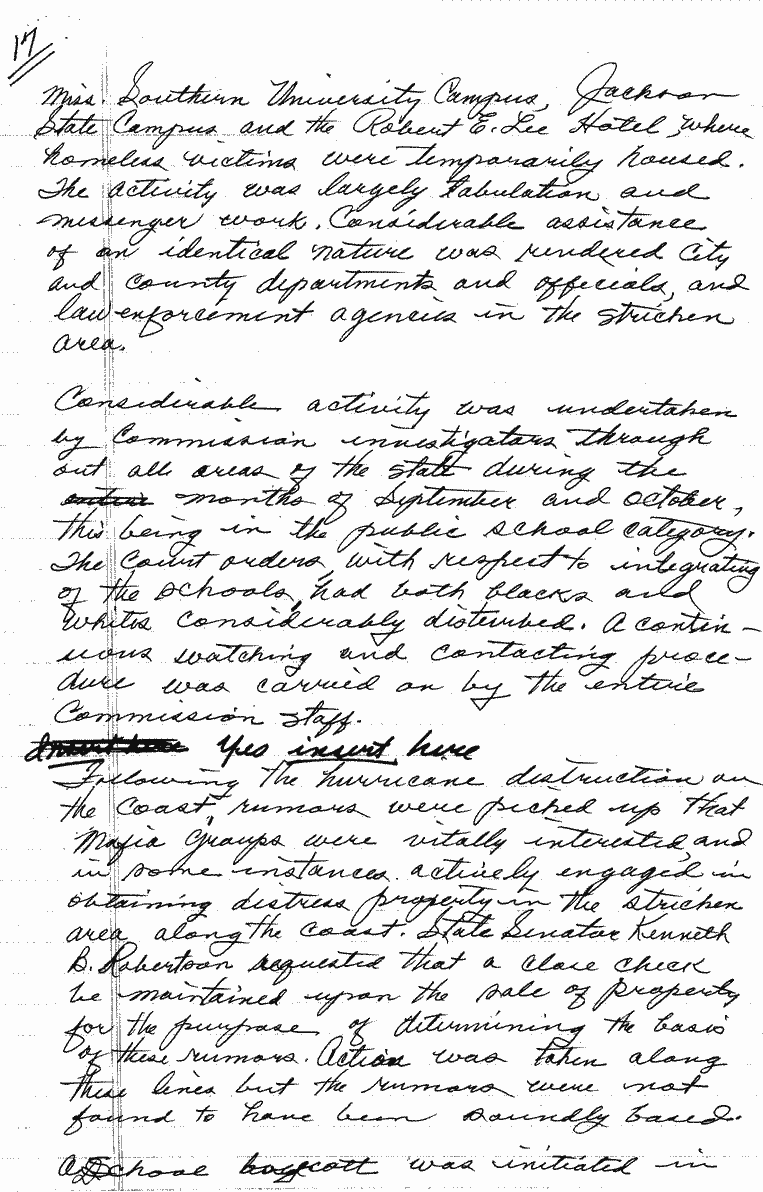 17
Miss. Southern University Campus, Jackson
State Campus and the Robert E. Lee Hotel, where
homeless victims were temporarily housed.
The activity was largely tabulation and
messenger work. Considerable assistance
of an identical nature was rendered City
and county departments and officials, and
law enforcement agencies in the stricken
area.
Considerable activity was undertaken
by Commission investigators through
out all areas of the state during the
entire months of September and October,
this being in the public school category.
The Court orders, with respect to integrating
of the schools, had both blacks and
whites considerably disturbed. A contin-
uous watching and contacting proce-
dure was carried on by the entire
Commission staff.
Insert here Yes insert here
Following the hurricane distruction on
the Coast, rumors were picked up that
Mafia Groups were vitally interested, and
in some instances actively engaged in
obtaining distress property in the stricken
area along the Coast. State Senator Kenneth
B. Robertson requested that a close check
be maintained upon the sale of property
for the purpose of determining the basis
of these rumors. Action was taken along
these lines but the rumors were not
found to have been soundly based.
A School boycott was initiated in